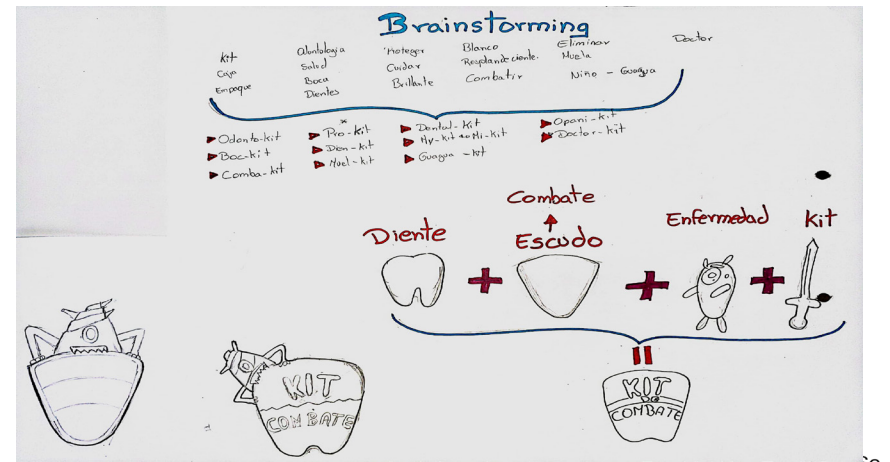 Brainstorming
Kit
Caja
Empaque
Odontologia
Salud
Boca
Dientes
Proteger
Cuidar
Brillante
Blanco
Resplandeciente.
Combatir
Eliminar
Muela
Niño - Guagua
Doctor
Odonto-kit
Boc-kit
Comba-kit
Pro-kit
Dien-kit
Muel-kit
Dental-kit
My-kit Mi-kit
Guagua-kit
Opani-kit
Doctor-kit
Combate
Diente
Escudo
Enfermedad
Kit
KIT
COMBATE
KIT
DE
COMBATE